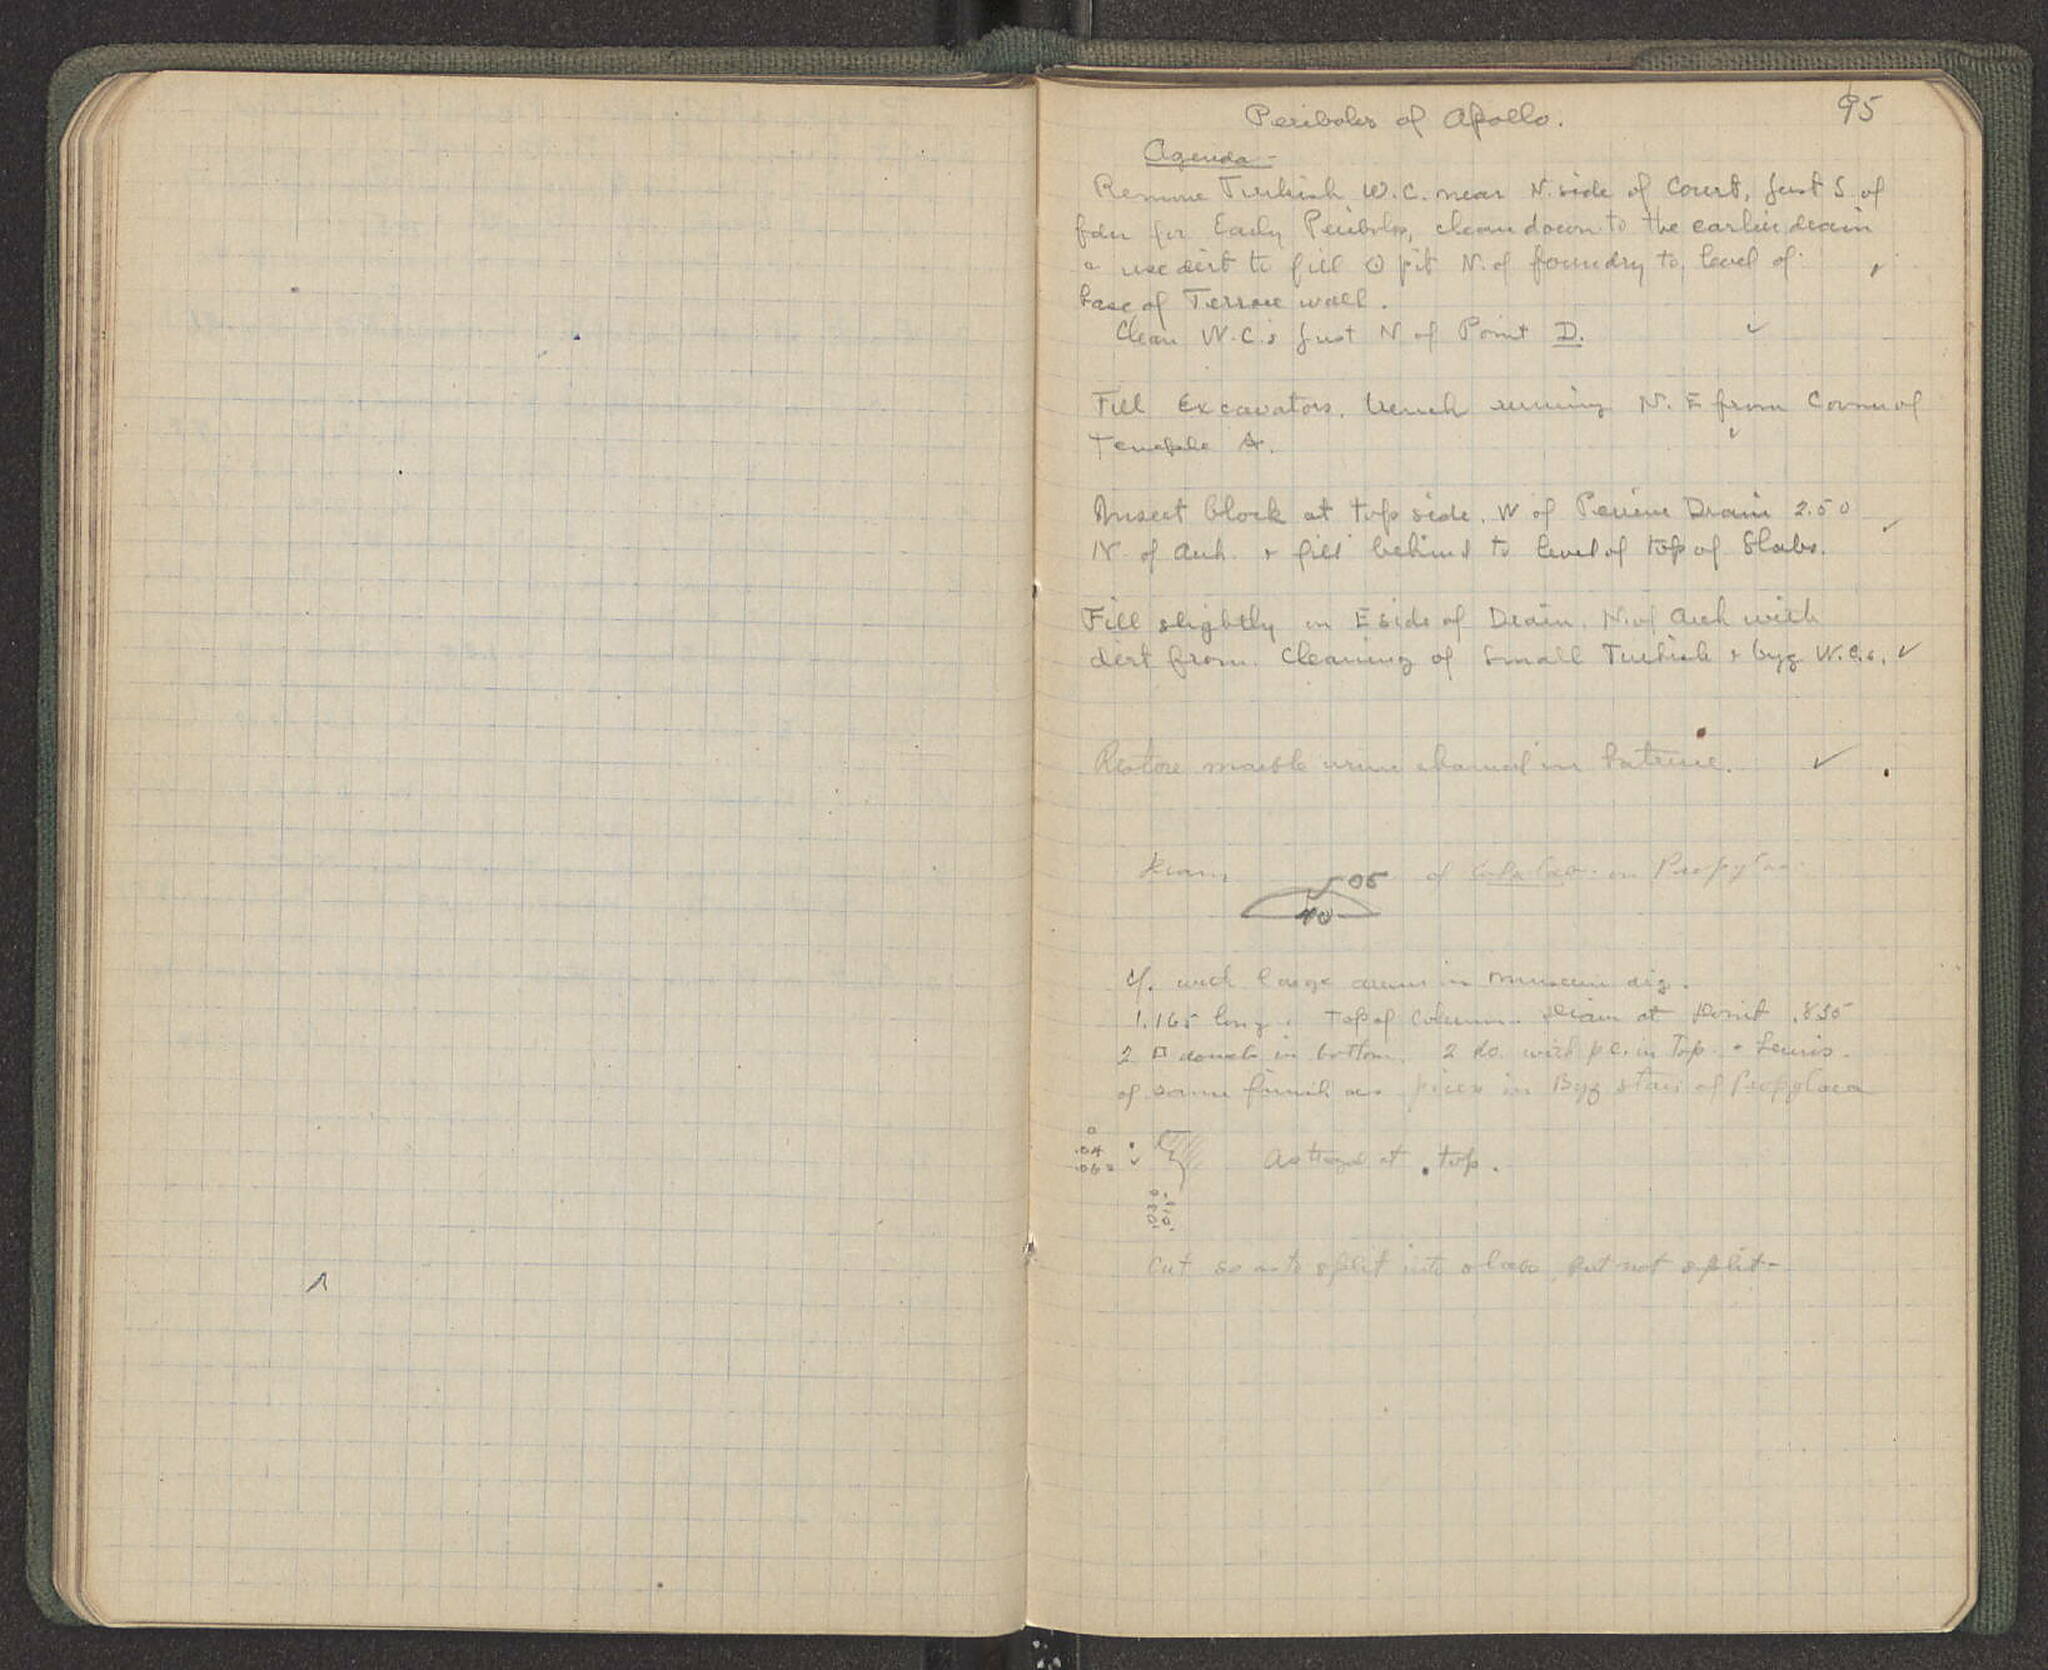 95
Peribolos of Apollo.
Agenda -
Remove Turkish W.C. near N. side of Court, just S of
fdn for Early Peribolos, clean down to the earlier drain
& use dirt to fill pit N. of foundry to level of
base of Terrace wall.
Clean W.C.'s just N of Point D.
Fill Excavators. trench running N. E from Corner of
Temple A.
Insert block at top side. W of Peirene Drain 2.50
N. of Arch. & fill behind to level of top of Slabs.
Fill slightly on E side of Drain. N. of Arch with
dirt from. Cleaning of Small Turkish & byz W.C.s.
Restore marble urine channel in Latrine.
Diam
.05
of in Propylaea
40
cf. with large drum in museum dig.
1.165 long. Top of Column. Diam at Point .835
2 □ dowels in bottom. 2 do. with p.c. in Top. & Lewis.
of same finish as piece in Byz stair of Propylaea
.04
.062
Astragal at top.
Cut so as to split into slabs, but not split-